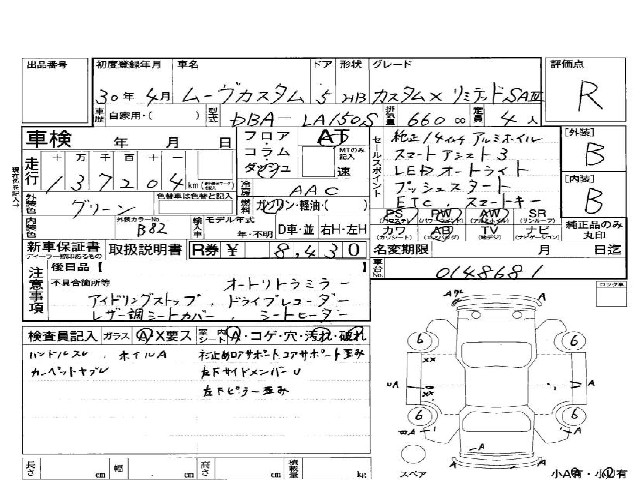 出品番号 初度登録年月 車名 ドア 形状 グレード 評価点
30年 4月 ムーヴカスタム 5 HB カスタムX リミテッドSAIII R
車歴 自家用・( ) 型式 DBA- LA150S 排気量 660 cc 定員 4人
車検 年 月 日
フロア・コラム ダッシュ AT MTのみ記入 速
セールスポイント
純正14インチ アルミホイル
スマートアシスト3
LEDオートライト
プッシュスタート
ETC、スマートキー
[外装] B
[内装] B
走行 十 万 千 百 十 一
137204km
冷房 AAC
外装色 グリーン 色替車は色替と記入
燃料 ガソリン・軽油・( )
内装色 外装カラーNo. B82
輸入車 モデル年式 年・不明 D車・並 右H・左H
PS PW AW SR
カワ AB TV ナビ
純正品のみ丸印
新車保証書 取扱説明書 R券 ¥ 8,430
名変期限 月 日迄
車台No. 0148681
注意事項
後日品 [ ]
不具合箇所等 オートリトラミラー
アイドリングストップ、ドライブレコーダー
レザー調シートカバー、シートヒーター
検査員記入 ガラス A X要ス 室内 シート A・コゲ・穴・汚れ・破れ
ハンドルスレ、ホイルA
カーペットヤブレ
左下サイドメンバーU
左下ピラー歪み
ロック車
A
6 6
xx
UA A A
xx
6 6
A A
A
スペア
長さ cm 幅 cm 高さ cm 積載量 kg
小A有・小U有